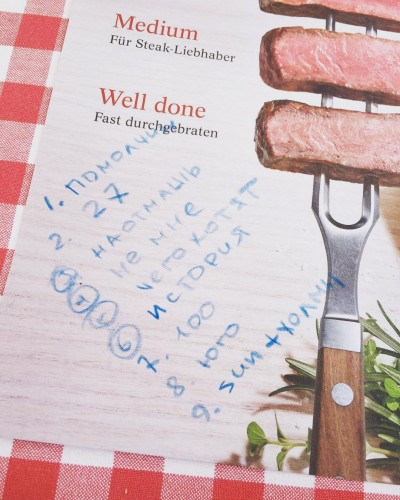 Medium
Für Steak-Liebhaber
Well done
Fast durchgebraten
1. ПОМОЛЧИМ
2. 27
3 НАОТМАШЬ
4 НЕ МНЕ
5 ЧЕГО ХОТЯТ
6 ИСТОРИЯ
7. 100
8. ЮГО
9. sun+ХОЛМЫ